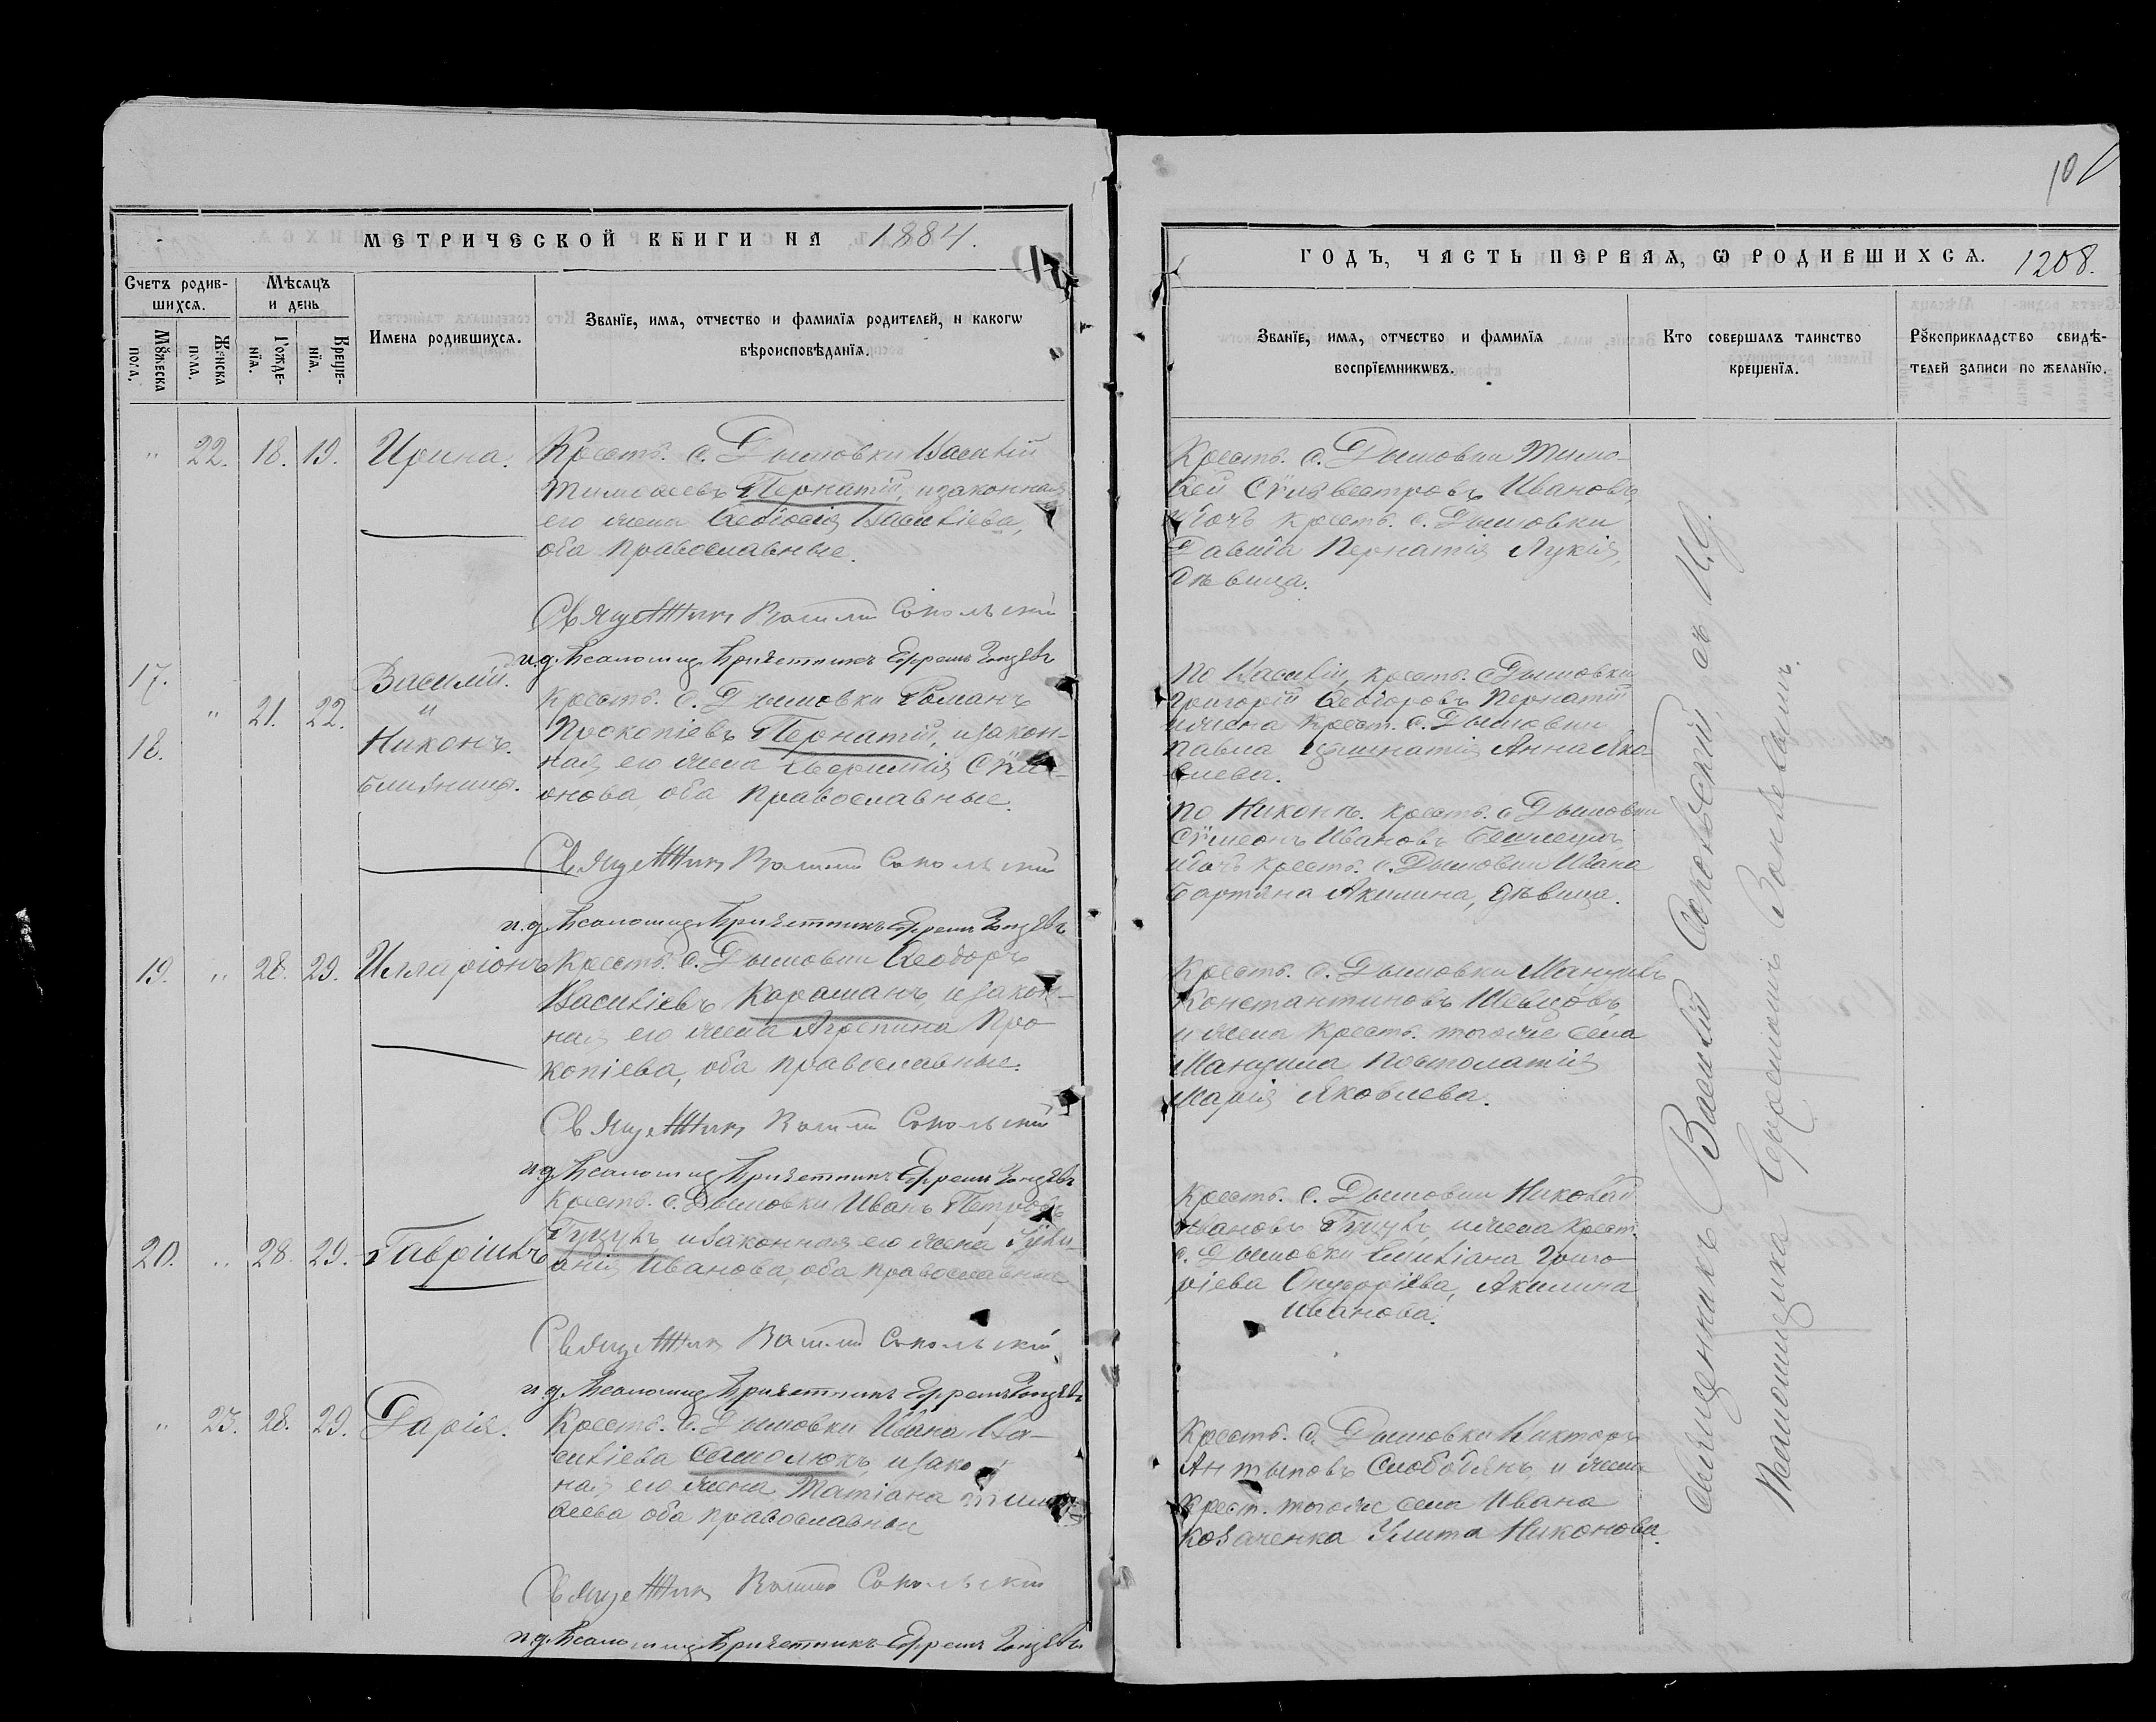 МЕТРИЧЕСКОЙ КНИГИ НА 1884.
Счетъ родив-
шихсѧ.
Мѣсѧцъ
и день
Мꙋжеска
пола.
Женска
пола.
Рожде-
нїѧ.
Креще-
нїѧ.
Имена родившихсѧ.
Званїе, имѧ, отчество и фамилїѧ родителей, и какогѡ
вѣроисповѣданїѧ.
" 22. 18. 19. Ирина.
Крестъ. с. Дымовки Василій
Тимоѳеевъ Пернатій, и законная
его жена Ѳеодосія Василіева,
оба православные.
Священникъ Василій Сокольскій
и.д. Псаломщ. Причетникъ Ефремъ
17.
18.
" 21. 22.
Василій.
и
Никонъ.
близнецы.
Крестъ. с. Дымовки Романъ
Прокопіевъ Пернатій, и закон-
ная его жена Сѵме-
онова, оба православные.
Священникъ Василій Сокольскій
и.д. Псаломщ. Причетникъ Ефремъ
19. " 28. 29. Илларіонъ
Крестъ. с. Дымовки Ѳеодоръ
Василіевъ Караманъ, и закон-
ная его жена Агрепина Про-
копіева, оба православные.
Священникъ Василій Сокольскій
и.д. Псаломщ. Причетникъ Ефремъ
20. " 28. 29. Гавріилъ
Крестъ. с. Дымовки Иванъ Петровъ
Гуцулъ, и законная его жена Іуліа-
анія Иванова, оба православные
Священникъ Василій Сокольскій
и.д. Псаломщ. Причетникъ Ефремъ
" 23. 28. 29. Дарія.
Крестъ. с. Дымовки Ивана Ва-
силіева и закон
ная его жена Татіана Тимо
ѳеева оба православные
Священникъ Василій Сокольскій
и.д. Псаломщ. Причетникъ Ефремъ
ГОДЪ, ЧАСТЬ ПЕРВАѦ, Ѡ РОДИВШИХСѦ. 1208.
Званїе, имѧ, отчество и фамилїѧ
воспрїемникѡвъ.
Кто совершалъ таинство
крещенїѧ.
Рꙋкоприкладство свидѣ-
телей записи по желанїю.
Крестъ. с. Дымовки Тимо-
ѳей Сѵлвестровъ Ивановъ,
и дочь крестъ. с. Дымовки
Давида Пернатія Лукія,
дѣвица.
По Василіи, крестъ. с. Дымовки
Григорій Ѳеодоровъ Пернатій
и жена крест. с. Дымовки
Павла Анна Яко-
влева.
По Никонѣ. крестъ. с. Дымовки
Сѵмеонъ Ивановъ
и дочь крестъ. с. Дымовки Ивана
Бартяна Акилина, дѣвица.
Крестъ. с. Дымовки Мануилъ
Константиновъ Шевцовъ,
и жена крестъ. того же села
Мануила Постолатія
Марія Яковлева.
Крестъ. с. Дымовки Николай
Ивановъ Гуцулъ, и жена крест.
с. Дымовки Емиліана Григо-
ріева Онуфріева, Акилина
Иванова.
Крестъ. с. Дымовки Викторъ
Антыповъ Слободянъ, и жена
крест. того же села Ивана
Козаченка Улита Никонова.
Священникъ Василій Сокольскій, съ И.Д.
Псаломщика